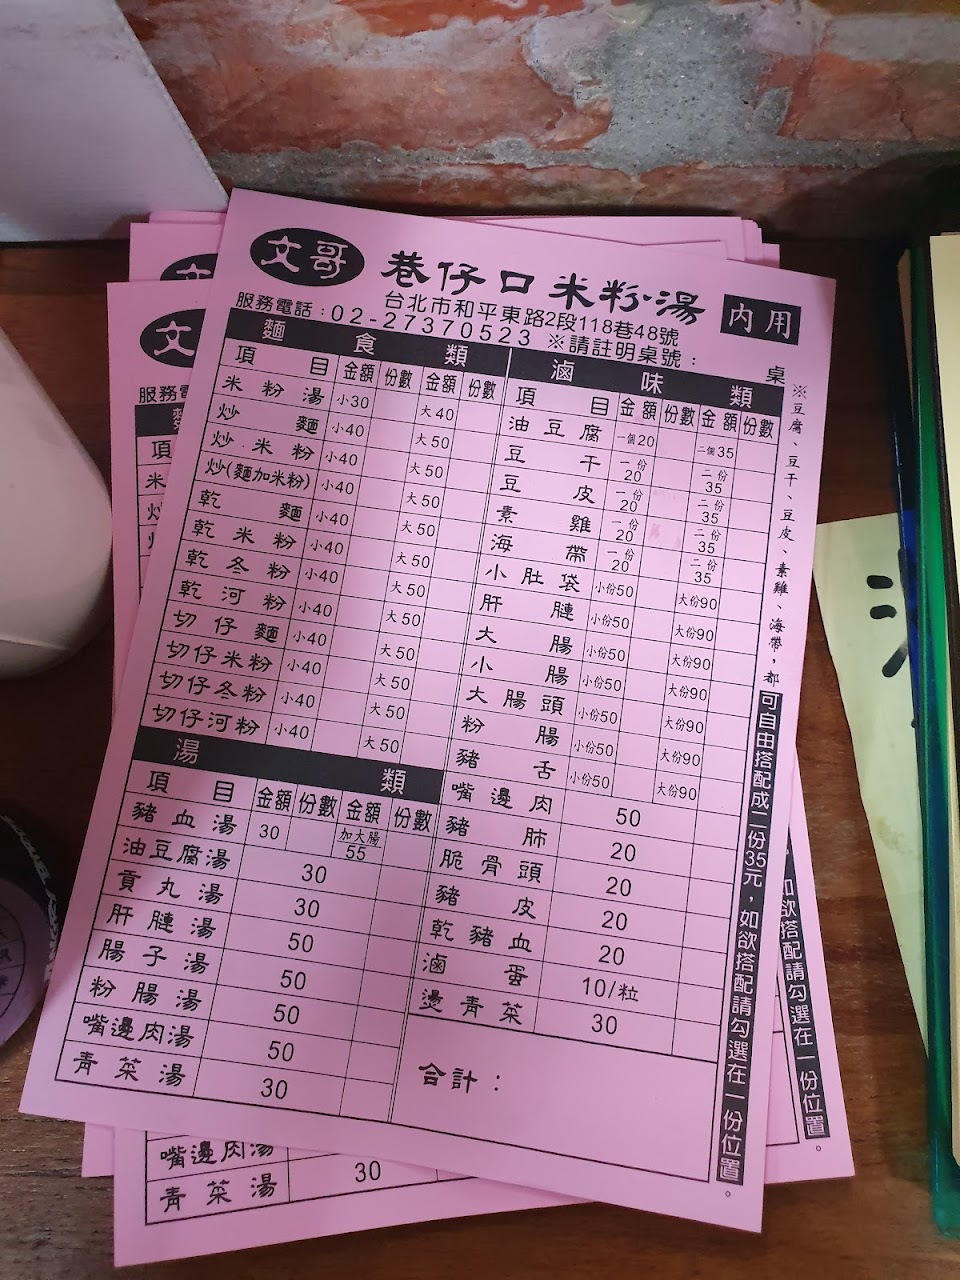 文哥 巷仔口米粉湯 內用
台北市和平東路2段118巷48號
服務電話：02-27370523 ※請註明桌號： 桌
麵食類
項目 金額 份數 金額 份數
米粉湯 小30 大40
炒麵 小40 大50
炒米粉 小40 大50
炒(麵加米粉) 小40 大50
乾麵 小40 大50
乾米粉 小40 大50
乾冬粉 小40 大50
乾河粉 小40 大50
切仔麵 小40 大50
切仔米粉 小40 大50
切仔冬粉 小40 大50
切仔河粉 小40 大50
湯類
項目 金額 份數 金額 份數
豬血湯 30 加大腸55
油豆腐湯 30
貢丸湯 30
肝膧湯 50
腸子湯 50
粉腸湯 50
嘴邊肉湯 50
青菜湯 30
滷味類
項目 金額 份數 金額 份數
油豆腐 一個20 二個35
豆干 一份20 二份35
豆皮 一份20 二份35
素雞 一份20 二份35
海帶 一份20 二份35
小肚袋 小份50 大份90
肝膧 小份50 大份90
大腸 小份50 大份90
小腸 小份50 大份90
大腸頭 小份50 大份90
粉腸 小份50 大份90
豬舌 小份50 大份90
嘴邊肉 50
豬肺 20
脆骨頭 20
豬皮 20
乾豬血 20
滷蛋 10/粒
燙青菜 30
合計：
※豆腐、豆干、豆皮、素雞、海帶，都可自由搭配成二份35元，如欲搭配請勾選在一份位置。
文
服務電
項
米
炒
如欲搭配請勾選在一份位置。
嘴邊肉湯
青菜湯 30